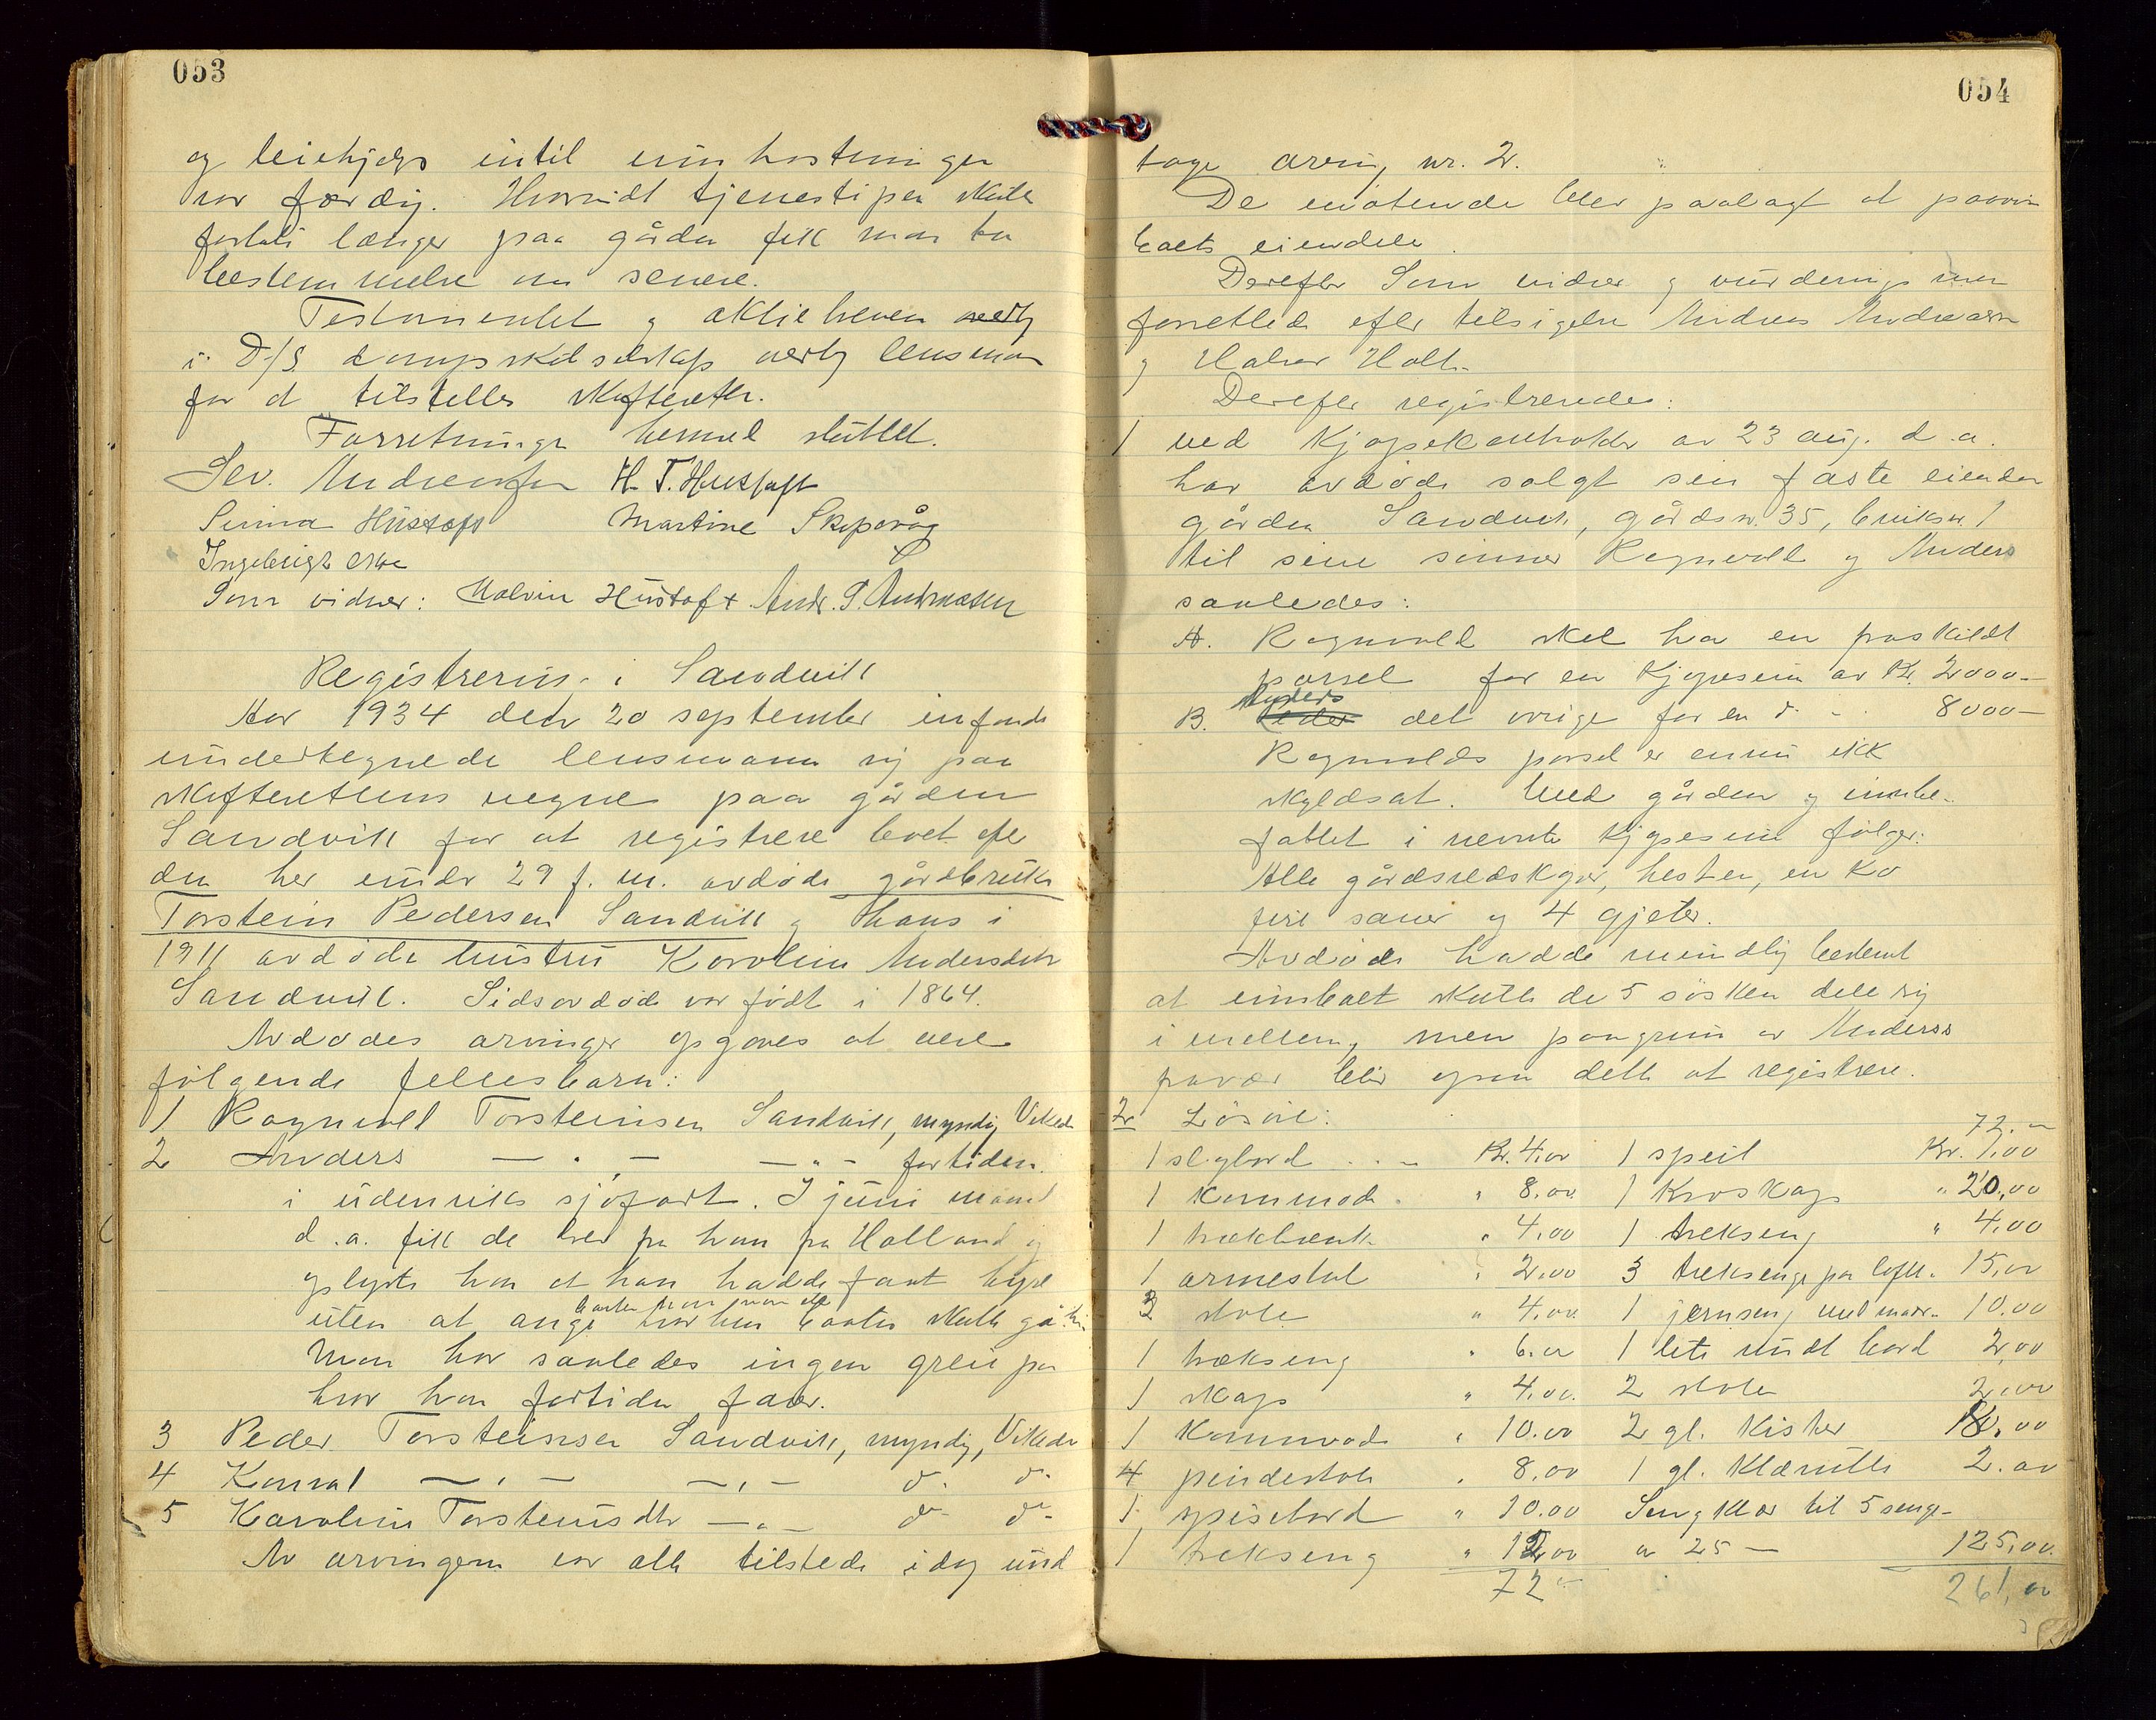 053
og leiehjelp intil innhøstningen
var færdig. Hvorvidt tjenestepiken skule
forbli længer paa gården fik man ta
bestemmelse om senere.
Testamentet og aktiebreven
i D/S dampskibsselskap vedlg lensman
for at tilstilles skifteretten.
Forretningen hermed sluttet.
Sev. Andreassen H. T. Hustoft
Sunna Hustoft Martine Skipevåg
Ingebrigt
Som vidner: Malvin Hustoft Andr. S. Andreasen
Registrering i Sandvik
Aar 1934 den 20 september innfandt
undertegnede lensmann sig paa
skifterettens vegne paa gården
Sandvik for at registrere boet efter
den her under 29 f. m. avdøde gårdbruker
Torstein Pedersen Sandvik og hans i
1911 avdøde hustru Karoline Andersdtr
Sandvik. Sidstavdøde var født i 1864.
Avdødes arvinger opgaves at være
følgende fellesbarn:
1 Ragnvald Torsteinsen Sandvik, myndig Vikedal
2 Anders — " — — " — fortiden
i udenriks sjøfart. I juni måned
d.a. fik de brev fra ham fra Holland og
oplyste han at han hadde faat hyre
uten at angi hvorhen baaten skulle gå
Man har saaledes ingen greie paa
hvor han fortiden farer.
3 Peder Torsteinsen Sandvik, myndig, Vikedal
4 Konrad — " — — " — do do
5 Karoline Torsteinsdtr — " — do do
Av arvingerne var alle tilstede idag und
054
tage arving nr. 2.
De møtende blev paalagt at paavise
boets eiendele.
Derefter Som vidner og vurderingsmen
forrettede efter tilsigelse Andreas Andreassen
og Halvor Holte.
Derefter registreredes:
1 Ved kjøpekontrakt av 23 aug. d.a.
har avdøde solgt sin faste eiendom
gården Sandvik, gårdsnr. 35, bruksnr. 1
til sine sønner Ragnvald og Anders
saaledes:
A. Ragnvald skal ha en fraskildt
parsel for en kjøpesum av Kr. 2000 —
B. Anders det øvrige for en do - 8000 —
Ragnvalds parsel er ennu ikke
skyldsat. Med gården og innbe-
fattet i nevnte kjøpesum følger:
Alle gårdsredskaper, hesten, en ko
fire sauer og 4 gjeter.
Avdøde hadde mundtlig bestemt
at innboet skulle de 5 søsken dele sig
imellem, men paagrunn av Anderss
fravær blir ogsaa dette at registrere.
2 Løsøre:
72.—
1 slagbord Kr. 4.00 1 speil Kr. 7,00
1 kommode " 8,00 1 Kroskap " 20,00
1 trækbenk " 4,00 1 trekseng " 4,00
1 armestol " 2,00 3 treksenger paa loftet 15,00
3 stole " 4,00 1 jernseng med madr. 10,00
1 trækseng " 6.00 1 lite rundt bord 2,00
1 skap " 4.00 2 stoler 2,00
1 Kommode " 10.00 2 gl. Kister
4 pindestole " 8,00 1 gl. Klærulle 2.00
1 spisebord " 10.00 Sengklær til 5 senge
1 trekseng " 12,00 a 25 — 125,00
72 — 261,00